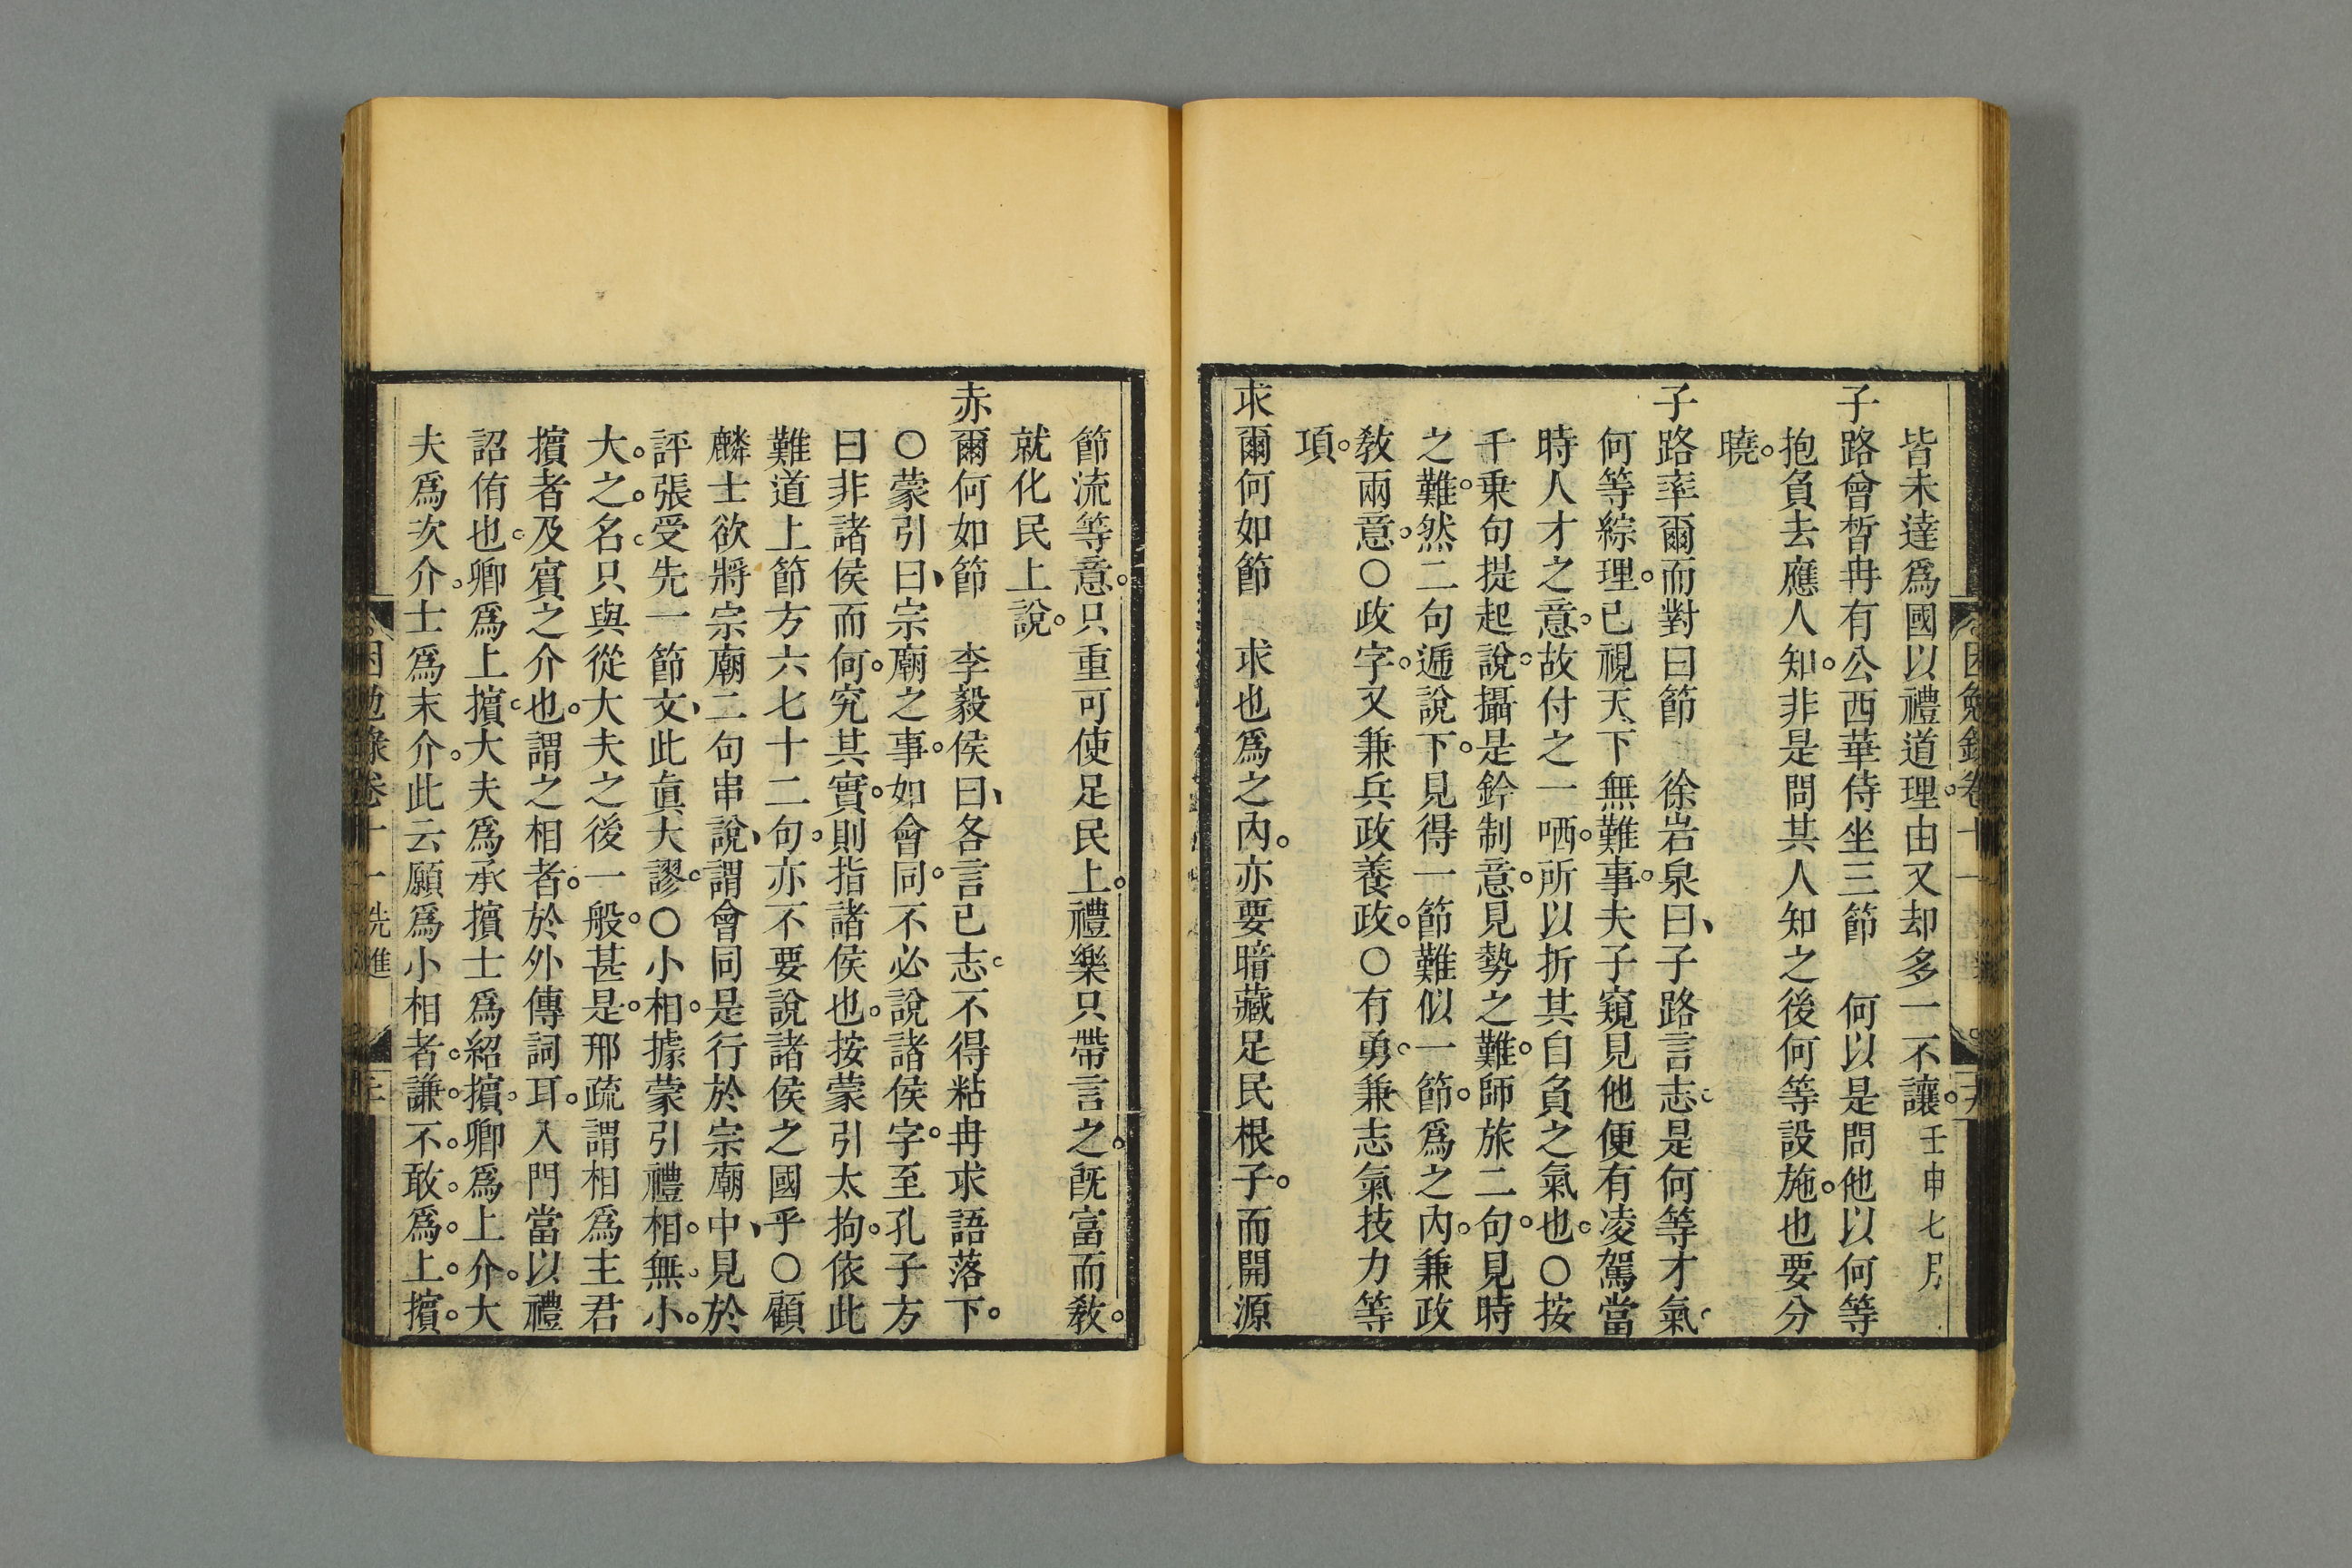 皆未達爲國以禮道理。由又却多一不讓。壬申七月
子路曾晳冉有公西華侍坐三節　何以是問他以何等
抱負去應人知。非是問其人知之後何等設施。也要分
曉。
子路率爾而對曰節　徐岩泉曰、子路言志。是何等才氣。
何等綜理。已視天下無難事。夫子窺見他便有凌駕當
時人才之意。故付之一哂。所以折其自負之氣也。○按
千乗句提起說。攝是鈐制意。見勢之難。師旅二句。見時
之難。然二句遞說下。見得一節難似一節。爲之內。兼政
敎兩意。○政字。又兼兵政養政。○有勇。兼志氣技力等
項。
求爾何如節　求也爲之內。亦要暗藏足民根子。而開源
節流等意。只重可使足民上。禮樂只帶言之。旣富而敎。
就化民上說。
赤爾何如節　李毅侯曰、各言已志。不得粘冉求語落下。
○蒙引曰、宗廟之事。如會同。不必說諸侯字。至孔子方
曰非諸侯而何。究其實。則指諸侯也。按蒙引太拘。依此
難道上節方六七十二句。亦不要說諸侯之國乎○顧
麟士欲將宗廟二句串說、謂會同是行於宗廟中、見於
評張受先一節文、此眞大謬。○小相。據蒙引禮相。無小。
大。之。名。只與從大夫之後一般。甚是。那疏謂相爲主君
擯者及賓之介也。謂之相者。於外傳詞耳。入門當以禮
詔侑也。卿爲上擯。大夫爲承擯士爲紹擯。卿爲上介。大
夫爲次介。士爲末介。此云願爲小相者。謙。不。敢。爲。上。擯。
困勉錄卷十一　先進